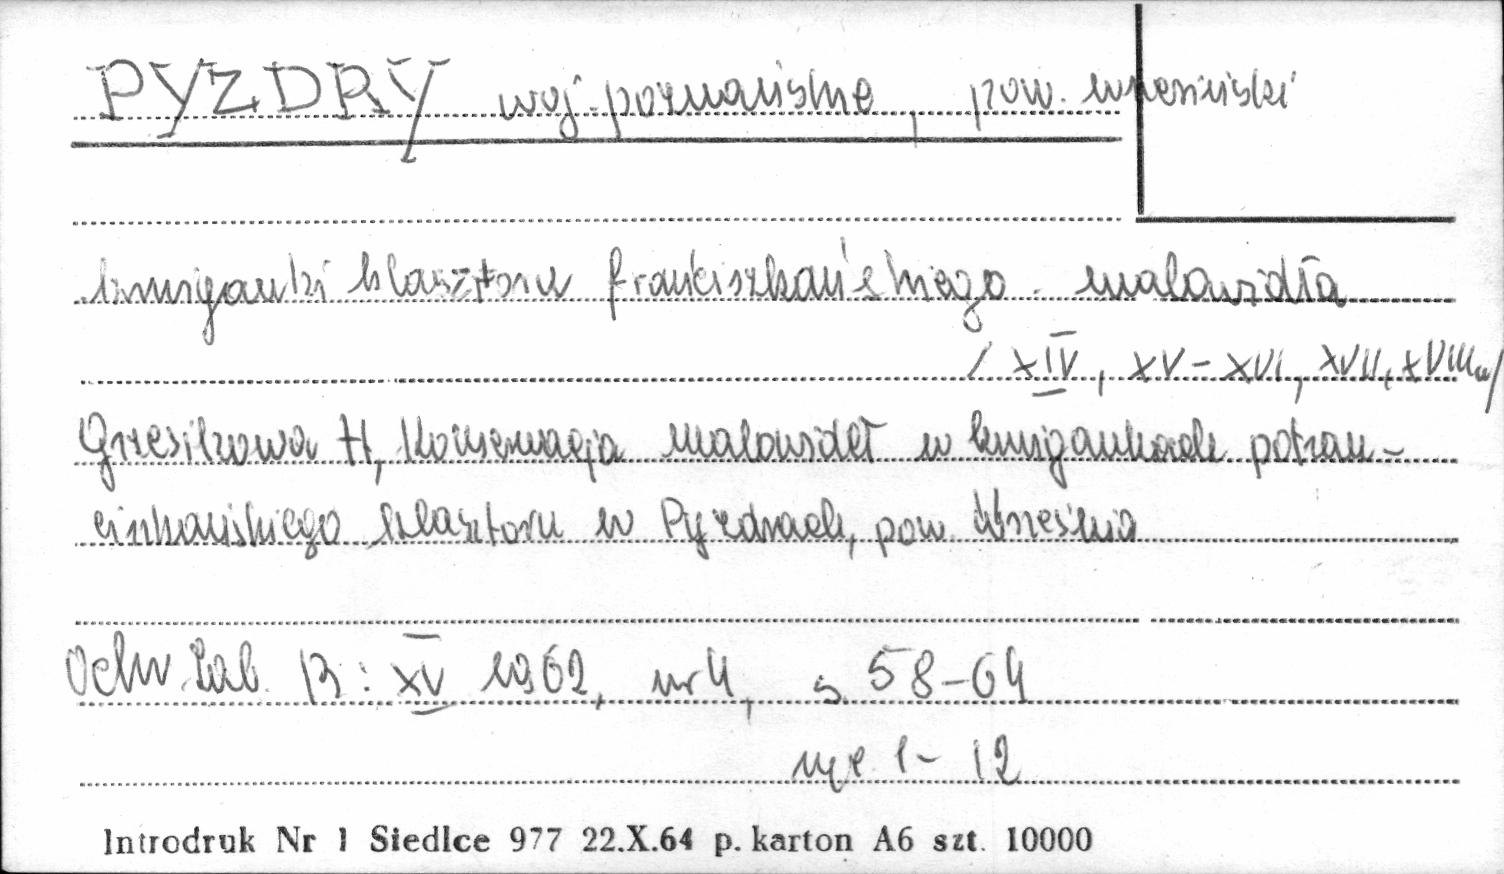 PYZDRY woj. poznańskie, pow. wrzesiński
krużganki klasztoru franciszkańskiego - malowidła
/XIV, XV-XVI, XVII, XVIII w/
Grzesikowa H, Konserwacja malowideł w krużgankach pofran-
ciszkańskiego klasztoru w Pyzdrach, pow. Września
Ochr. Zab. R: XV 1962, nr 4, s. 58-64
ryc. 1-12
Introdruk Nr 1 Siedlce 977 22.X.64 p. karton A6 szt. 10000